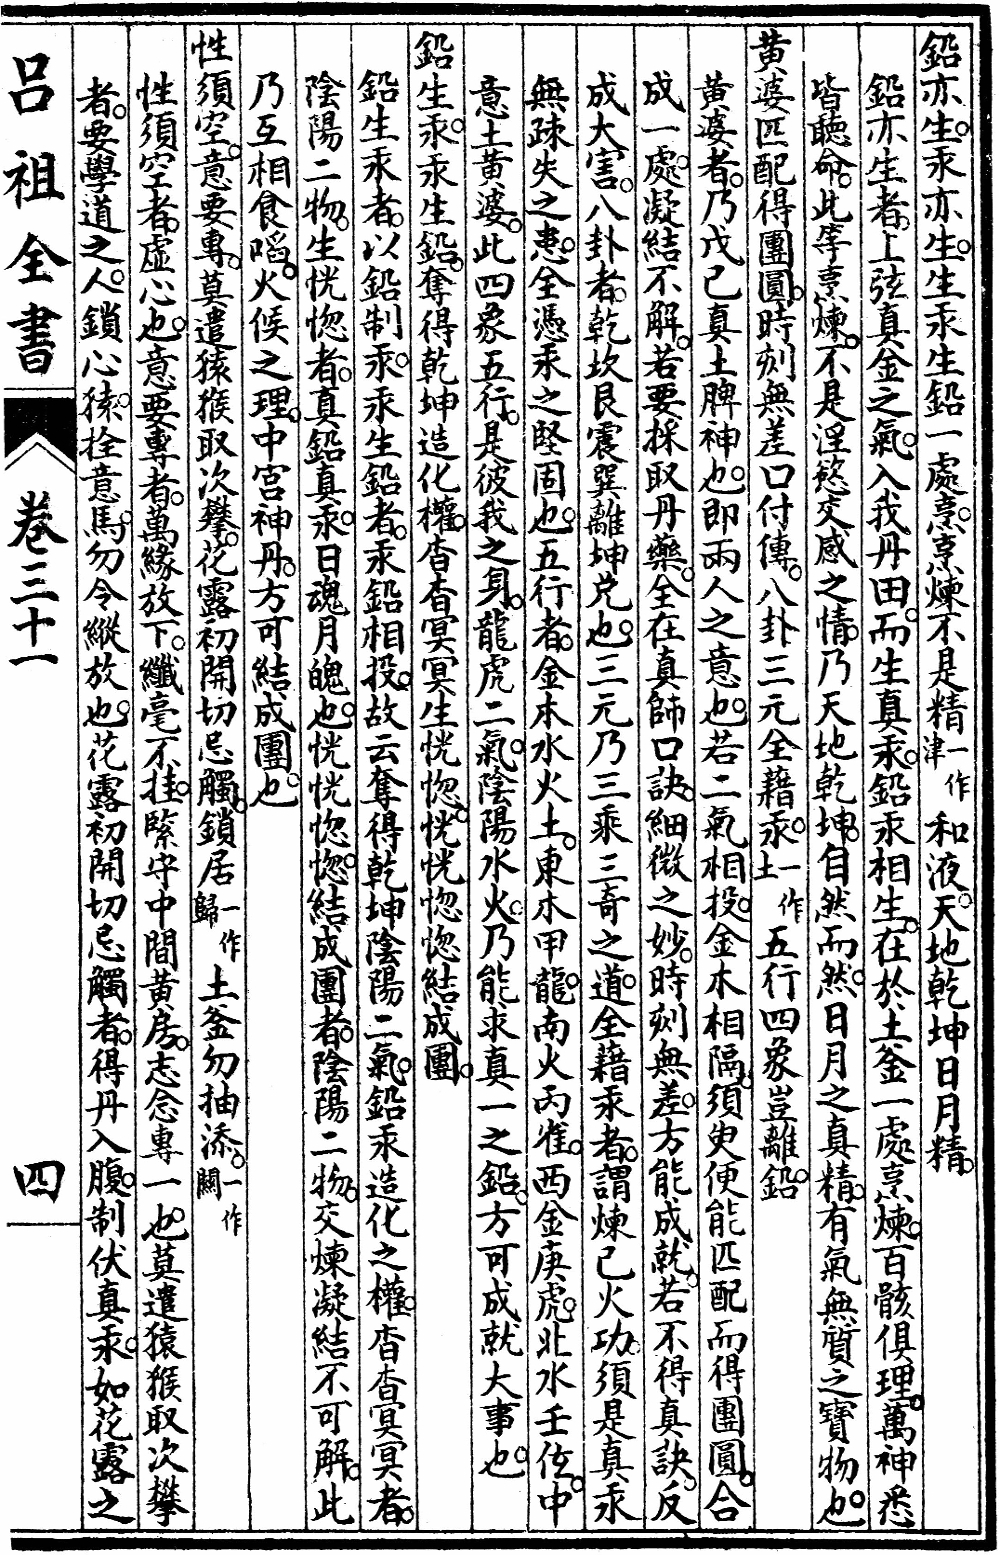 鉛亦生。汞亦生。生汞生鉛一處烹。烹煉不是精一作津和液。天地乾坤日月精。
鉛亦生者。上弦真金之氣。入我丹田。而生真汞。鉛汞相生。在於土釜一處烹煉。百骸俱理。萬神悉
皆聽命。此等烹煉。不是淫慾交感之情。乃天地乾坤。自然而然。日月之真精。有氣無質之寶物也。
黃婆匹配得團圓。時刻無差口付傳。八卦三元全藉汞。一作土五行四象豈離鉛。
黃婆者。乃戊己真土脾神也。即兩人之意也。若二氣相投。金木相隔。須臾便能匹配而得團圓。合
成一處。凝結不解。若要採取丹藥。全在真師口訣。細微之妙。時刻無差。方能成就。若不得真訣。反
成大害。八卦者。乾坎艮震巽離坤兌也。三元乃三乘三奇之道。全藉汞者。謂煉己火功。須是真汞
無疎失之患。全憑汞之堅固也。五行者。金木水火土。東木甲龍。南火丙雀。西金庚虎。北水壬位。中
意土黃婆。此四象五行。是彼我之身。龍虎二氣。陰陽水火。乃能求真一之鉛。方可成就大事也。
鉛生汞。汞生鉛。奪得乾坤造化權。杳杳冥冥生恍惚。恍恍惚惚結成團。
鉛生汞者。以鉛制汞。汞生鉛者。汞鉛相投。故云奪得乾坤陰陽二氣。鉛汞造化之權。杳杳冥冥者。
陰陽二物。生恍惚者。真鉛真汞。日魂月魄也。恍恍惚惚。結成團者。陰陽二物。交煉凝結不可解。此
乃互相食啗。火候之理。中宮神丹。方可結成團也。
性須空。意要專。莫遣猿猴取次攀。花露初開切忌觸。鎖居一作歸土釜勿抽添。一作關
性須空者。虛心也。意要專者。萬緣放下。纖毫不挂。緊守中間黃房。志念專一也。莫遣猿猴取次攀
者。要學道之人。鎖心猿。拴意馬。勿令縱放也。花露初開切忌觸者。得丹入腹。制伏真汞。如花露之
呂祖全書
卷三十一
四